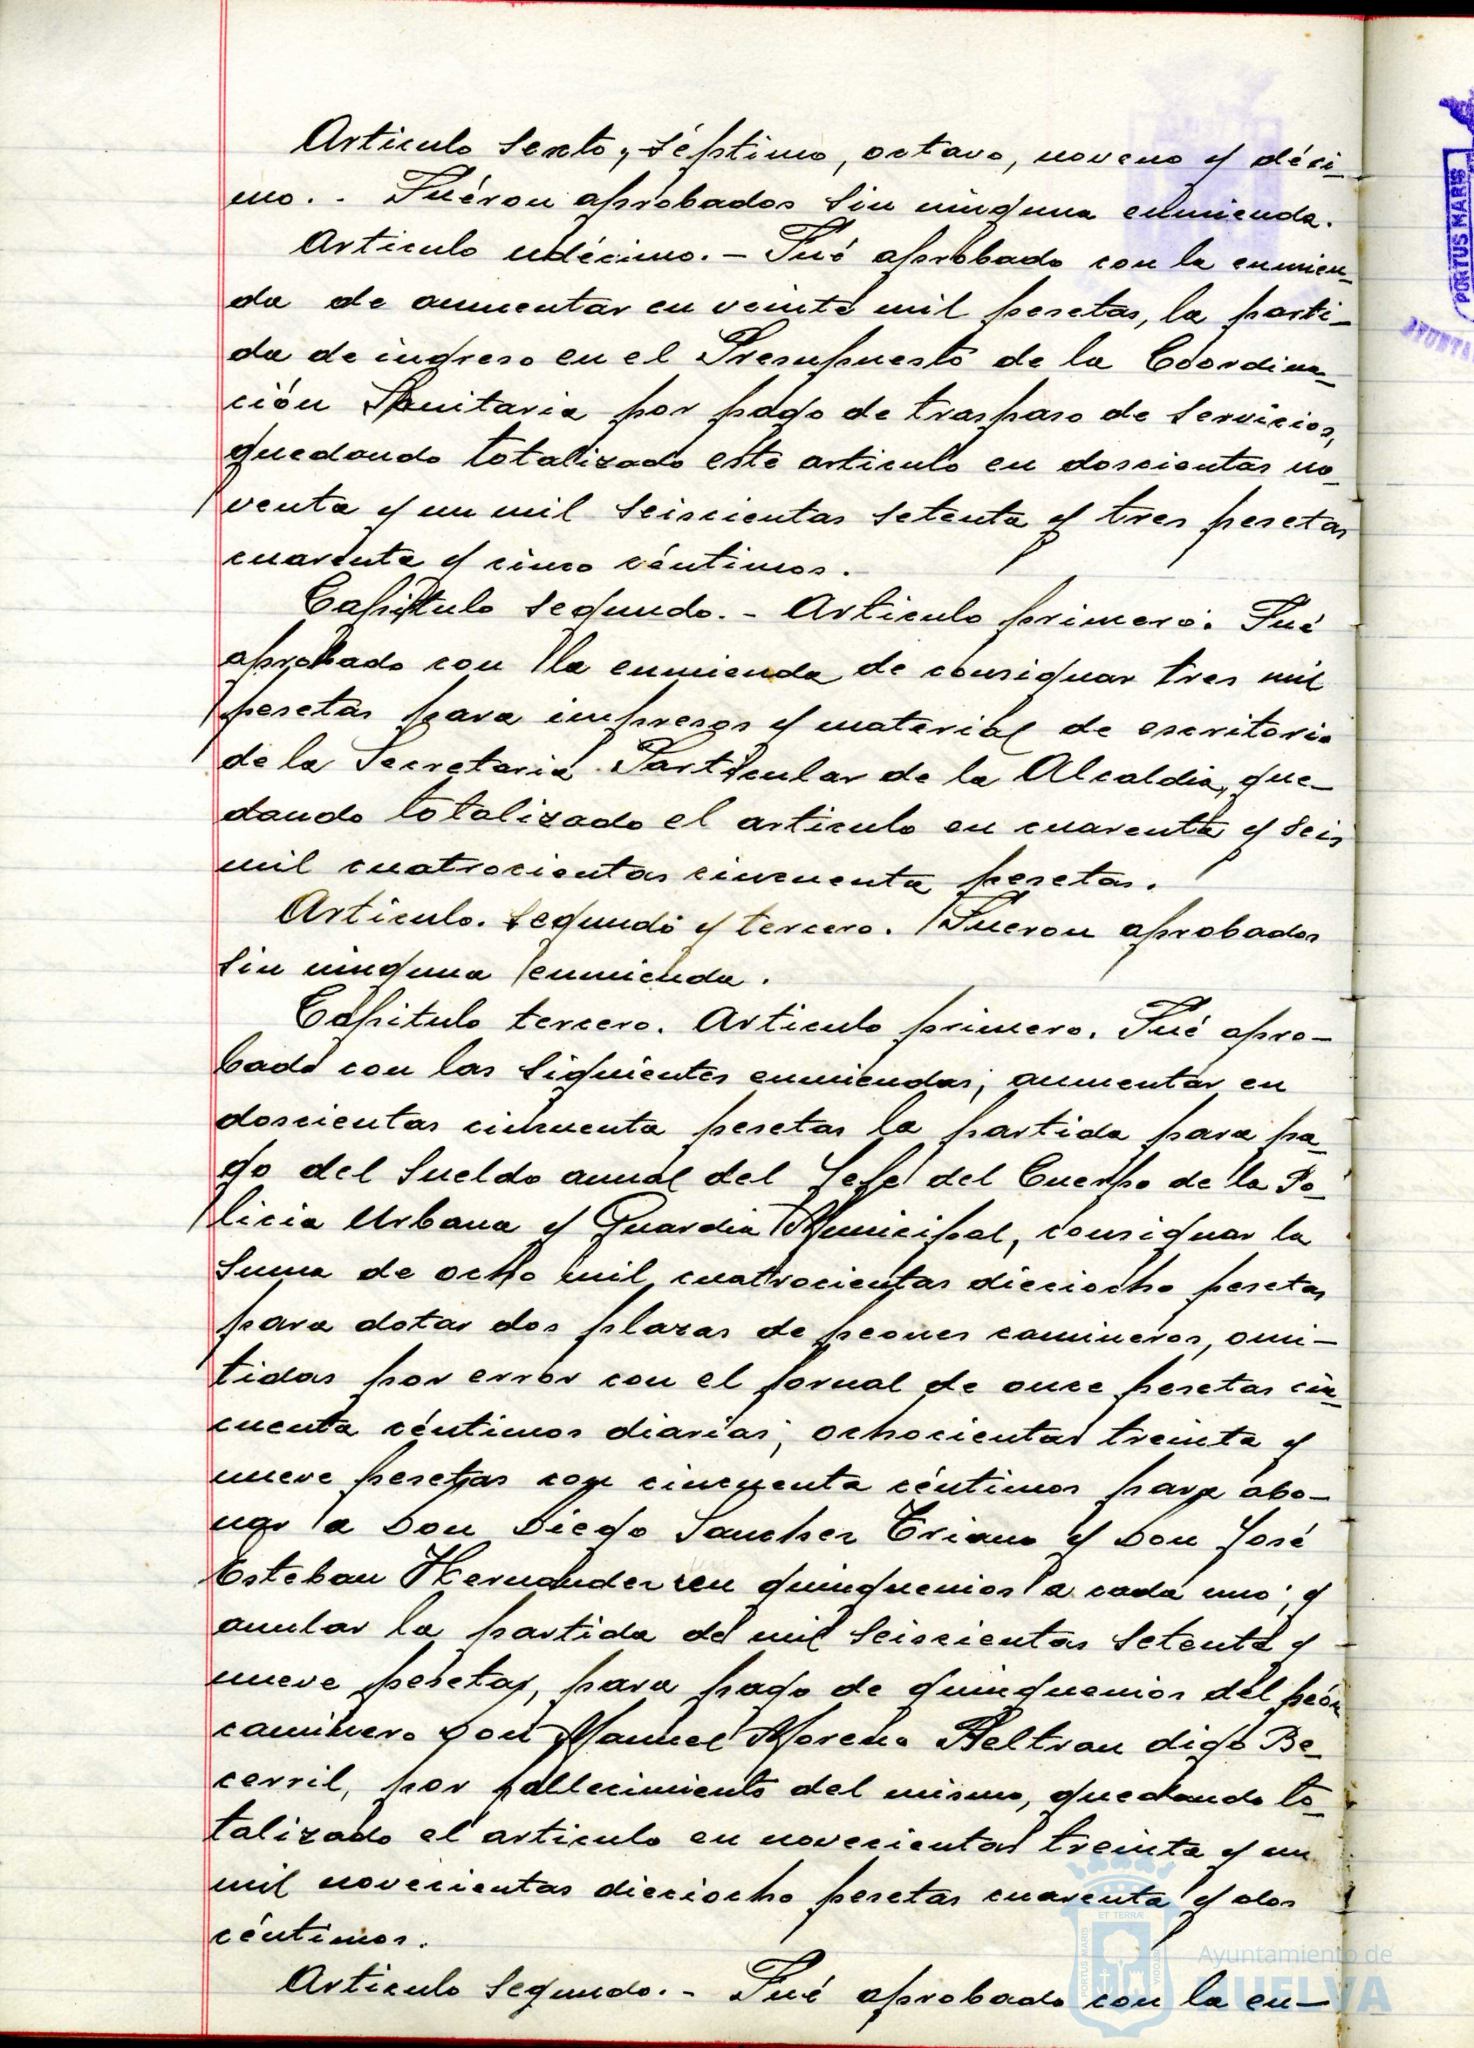 Articulo sexto, séptimo, octavo, noveno y déci-
mo.. Fuéron aprobados sin ninguna enmienda.
Articulo udécimo. - Fué aprobado con la enmien-
da de aumentar en veinte mil pesetas, la parti-
da de ingreso en el Presupuesto de la Coordina-
ción Sanitaria por pago de traspaso de servicios,
quedando totalizado este articulo en doscientas no-
venta y un mil seiscientas setenta y tres pesetas
cuarenta y cinco céntimos.
Capitulo segundo. - Articulo primero. Fué
aprobado con la enmienda de consignar tres mil
pesetas para impresos y material de escritorio
de la Secretaria Particular de la Alcaldia, que-
dando totalizado el articulo en cuarenta y seis
mil cuatrocientas cincuenta pesetas.
Articulo. segundo y tercero. Fueron aprobados
sin ninguna enmienda.
Capitulo tercero. Articulo primero. Fué apro-
bado con las siguientes enmiendas; aumentar en
doscientas cincuenta pesetas la partida para pa-
go del sueldo anual del Jefe del Cuerpo de la Po-
licia Urbana y Guardia Municipal, consignar la
suma de ocho mil cuatrocientas dieciocho pesetas
para dotar dos plazas de peones camineros, omi-
tidas por error con el jornal de once pesetas cin-
cuenta céntimos diarias; ochocientas treinta y
nueve pesetas con cincuenta céntimos para abo-
nar a Don Diego Sanchez Triano y Don José
Esteban Hernandez en quinquenios a cada uno; y
anular la partida de mil seiscientas setenta y
nueve pesetas, para pago de quinquenios del peón
caminero Don Manuel Moreno Beltran digo Be-
cerril, por fallecimiento del mismo, quedando to-
talizado el articulo en novecientas treinta y un
mil novecientas dieciocho pesetas cuarenta y dos
céntimos.
Articulo segundo. - Fué aprobado con la en-
PORTUS MARIS
AYUNTA
ET TERRÆ
PORTUS MARIS
Ayuntamiento de
HUELVA